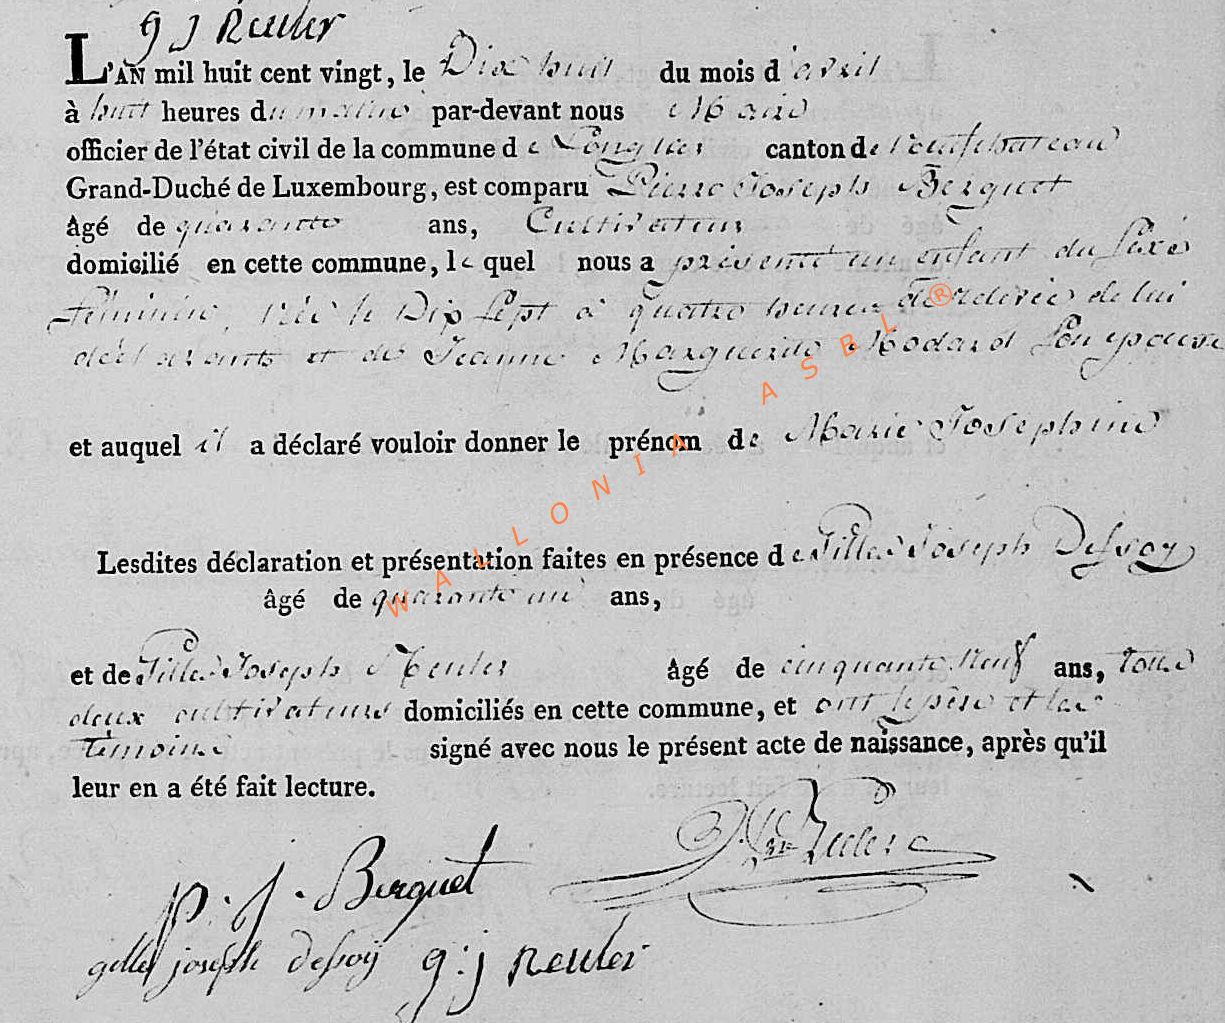 g J Reuler
L'AN mil huit cent vingt, le Dix huit du mois d'avril
à huit heures du matin par-devant nous Maire
officier de l'état civil de la commune de Longlier canton de neufchateau
Grand-Duché de Luxembourg, est comparu Pierre Joseph Berguet
âgé de quarante ans, Cultivateur
domicilié en cette commune, le quel nous a présenté un enfant du sexe
féminin, née le Dix sept à quatre heures de relevée de lui
déclarants et de Jeanne Marguerite Modard son epouse
et auquel il a déclaré vouloir donner le prénom de Marie Josephine
Lesdites déclaration et présentation faites en présence de Gille Joseph Dessoy
âgé de quarante un ans,
et de Gille Joseph Reuler âgé de cinquante neuf ans, tous
deux cultivateurs domiciliés en cette commune, et ont le père et les
témoins signé avec nous le présent acte de naissance, après qu'il
leur en a été fait lecture.
P. J. Berguet
gille joseph dessoy g: j Reuler
WALLONIA ASBL ®